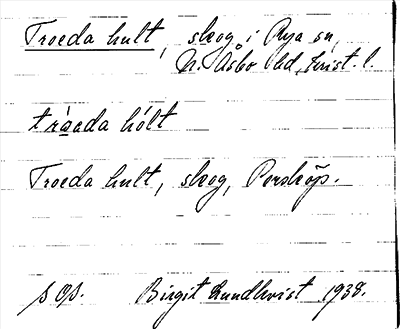 Troeda hult, skog i Rya sn,
N. Åsbo hd, Krist. l.
tråada hólt
Troeda hult, skog, Perstorp.
s Of. Birgit Lundkvist 1938.